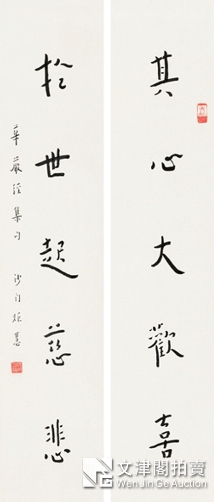 其心大歡喜
於世起慈悲
華嚴經集句
沙門炬慧
文津閣拍賣
Wen Jin Ge Auction